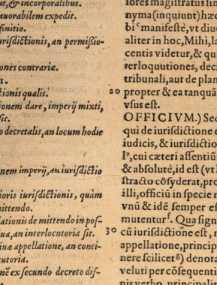 us, & incorporalibus.
uorabilem expedit.
finitio.
urisdictionis, an permissio-
iones contrariæ.
tionis qualis.
tionem dare, imperij mixti,
sit.
o decretalis, an locum hodie
onem imperij, an iurisdictio
ioris iurisdictionis, quàm
mittendo.
ationis de mittendo in pos-
ua, an interlocutoria sit.
inæ appellatione, an conti-
cutoria.
nē ex secundo decreto dis-
lores magistratus
nyma (inquunt) hæc
bi manifestè, vt diu
aliter in hoc, Mihi, la
centis videtur, & qu
terloquutiones, dec
tribunali, aut de plan
20 propter & ea tanquā
vsus est.
OFFICIVM.) Sec
qui de iurisdictione
iudicis, & iurisdictio
P, cui cæteri assentiū
& absolutè, id est (vt
stracto cōsyderat, pro
illi, officiū in specie
vnū & idē semper es
mutentur. Qua signi
30 cū iurisdictione est,
appellatione, princip
nere scilicet) denota
veluti per cōsequent